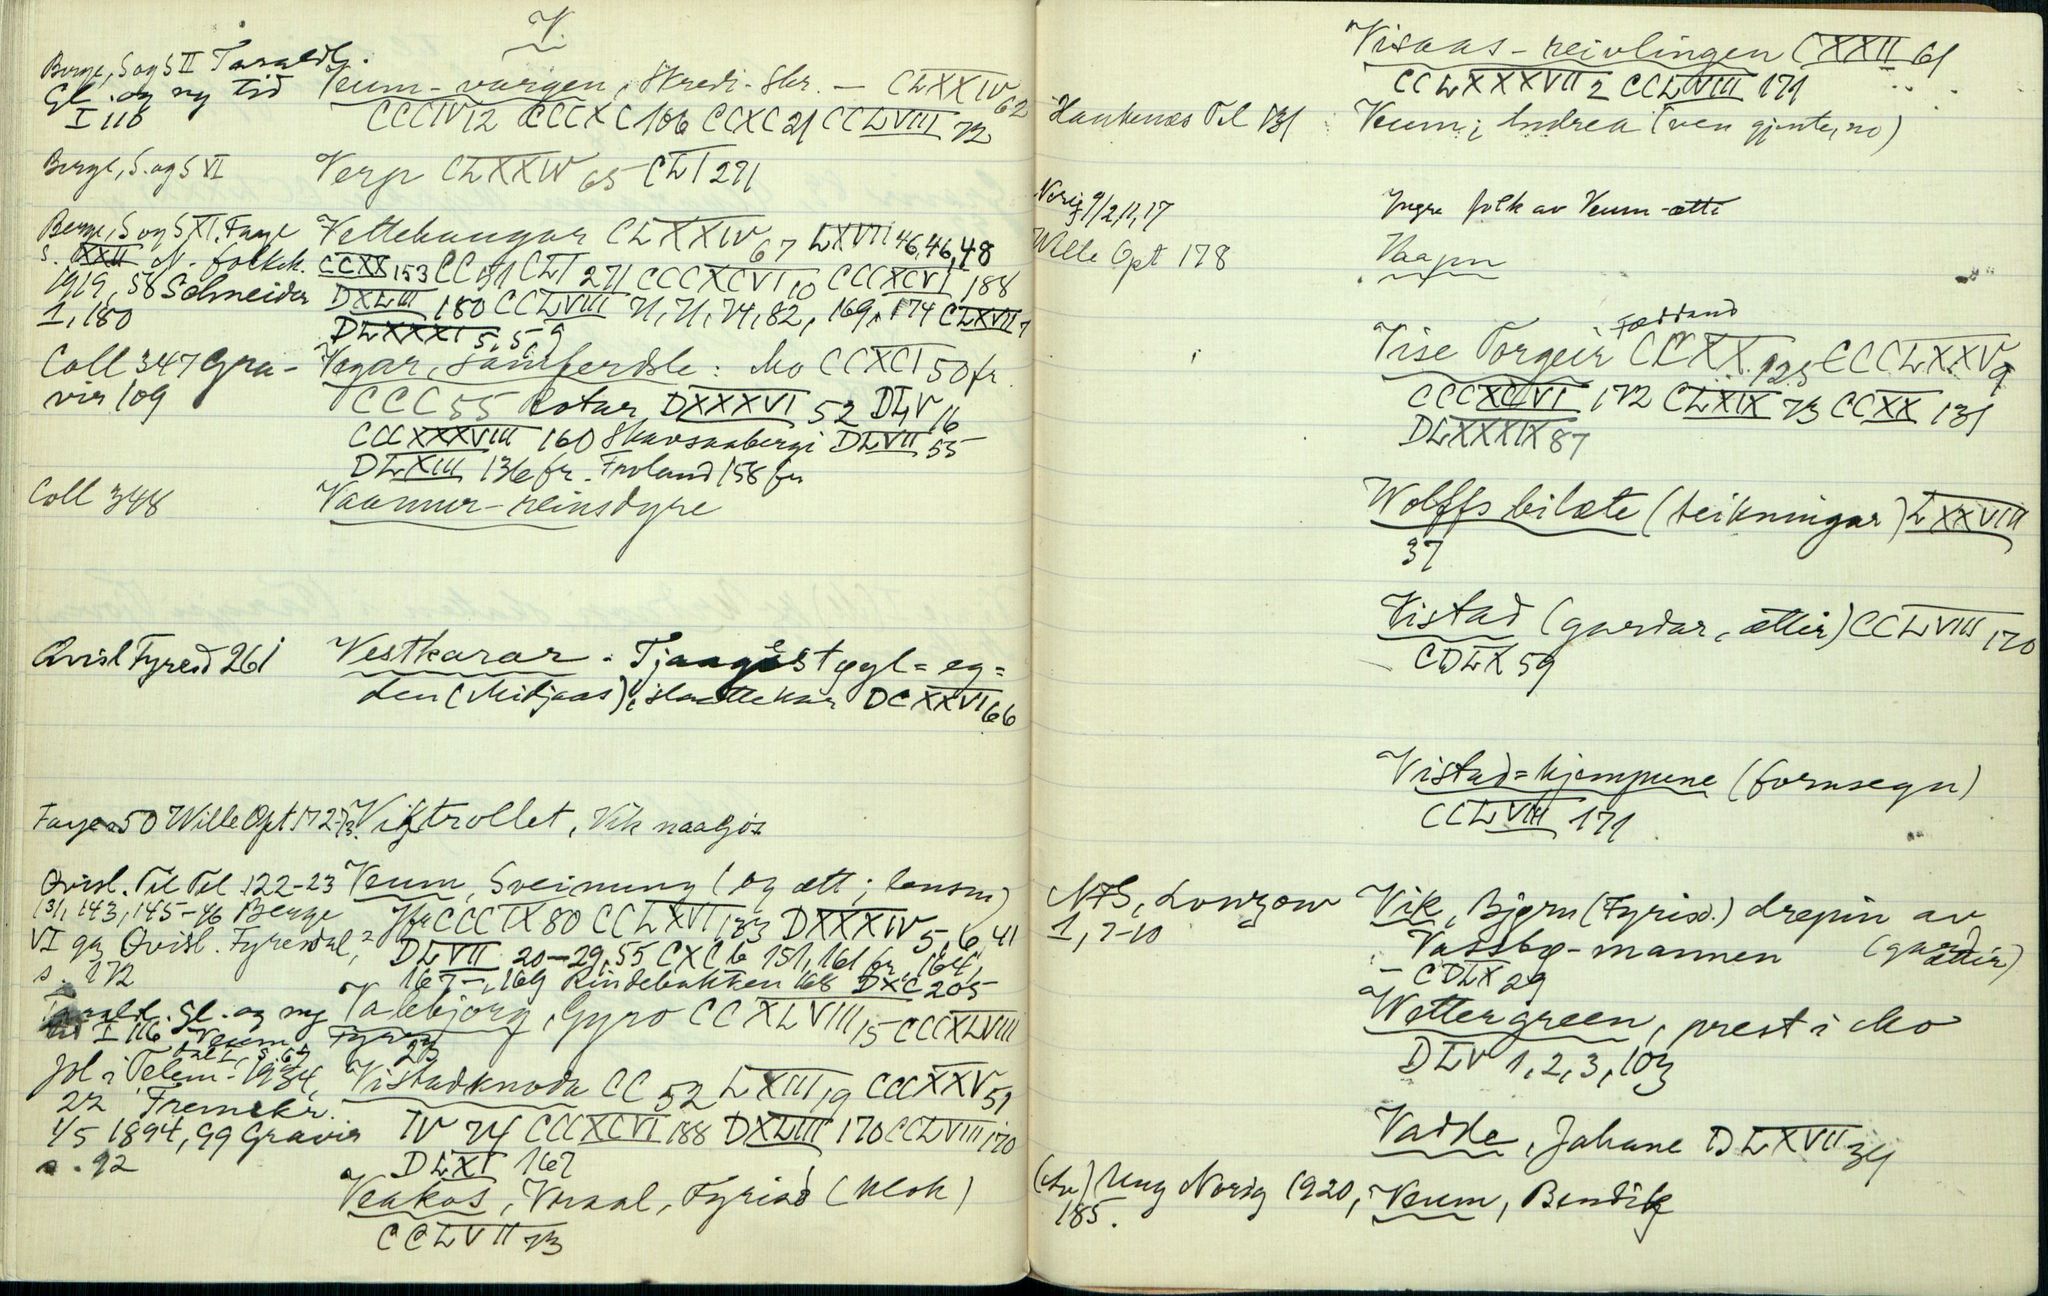 V.
Berge, S og S II Taraldl.
Gl. og ny tid Veum-vargen, Skredi-Skr. — CLXXIV 62
I 116 CCCIV 12 CCCXC 106 CCXC 21 CCLVIII 72
Berge, S. og S VI Verp CLXXIV 65 CLI 271
Berge, S og S XI, Faye Vettehaugar CLXXIV 67 LXVII 46, 46, 48
s. XXII N. folkek. CCXX 153 CC 31 CLI 271 CCCXCVI 10 CCCXCVI 188
1919, 58 Schneider DXLIII 180 CCLVIII 71, 71, 74, 82, 169, 174 CLXVII 7
1, 180 DLXXXI 5, 5, 9
Coll 347 Gra- Vegar, samferdsle: Mo CCXCI 50 fr.
vir 109 CCC 55 Rotar DXXXVI 52 DLV 16
CCCXXXVIII 160 Skavsaabergi DLVII 55
DLXIII 136 fr. Froland 158 fr
Coll 348 Vaamur-reinsdyre
Qvisl Fyresd 261 Vestkarar.
den (Midjaas), slaattekar DCXXVI 66
Faye 50 Wille Opt 172-73 Viktrollet, Vik
Qvisl. Til Tel 122-23 Veum, Sveinung (og ætt; lensm)
131, 143, 145-46 Berge Jfr CCCIX 80 CCLXVI 133 DXXXIV 5, 6, 41
VI 92 Qvisl. Fyresdal, DLVII 20-29, 55 CXC 6 151, 161 fr, 164,
s. 172 167-, 169 Rindebakken 168 DXC 205
Tarald. Gl. og ny Valebjørg, Gyro CCXLVIII 15 CCCXLVIII
tid I 116 Veum Fyresd 23
dal I, s. 67
Jol i Telem. 1934, Vistadknoda CC 52 LXIII 19 CCCXXV 51
22 Fremskr. IV 74 CCCXCVI 188 DXLIII 170 CCLVIII 170
1/5 1894, 99 Gravir DLXI 167
s. 92
Veakos, Vraal, Fyrisd (klok)
CCLVII 73
Visaas-reivlingen CXXII 61
CCLXXXVII 2 CCLVIII 171
Hankenæs Til 131 Veum, Andrea (ven gjente, no)
Norig 9/2, 11, 17 Yngre folk av Veum-ætti
Wille Opt 178 Vaapn
Fæddand
Vise Torgeir CCXX 125 CCCLXXV 9
CCCXCVI 172 CLXIX 73 CCXX 131
DLXXXIX 87
Wolffs bilæte (teikningar) LXXVIII
37
Vistad (gardar, ættir) CCLVIII 170
CDLX 59
Vistad-kjempune (fornsegn)
CCLVIII 171
NFS, Lowzow Vik, Bjørn (Fyrisd.) drepin av
1, 7-10 Vassbø-mannen (gard ættir)
— CDLX 29
Wettergreen, prest i Mo
DLV 1, 2, 3, 103
Vadde, Johane DLXVII 34
(Av) Ung Norig 1920, Veum, Bendik
185.